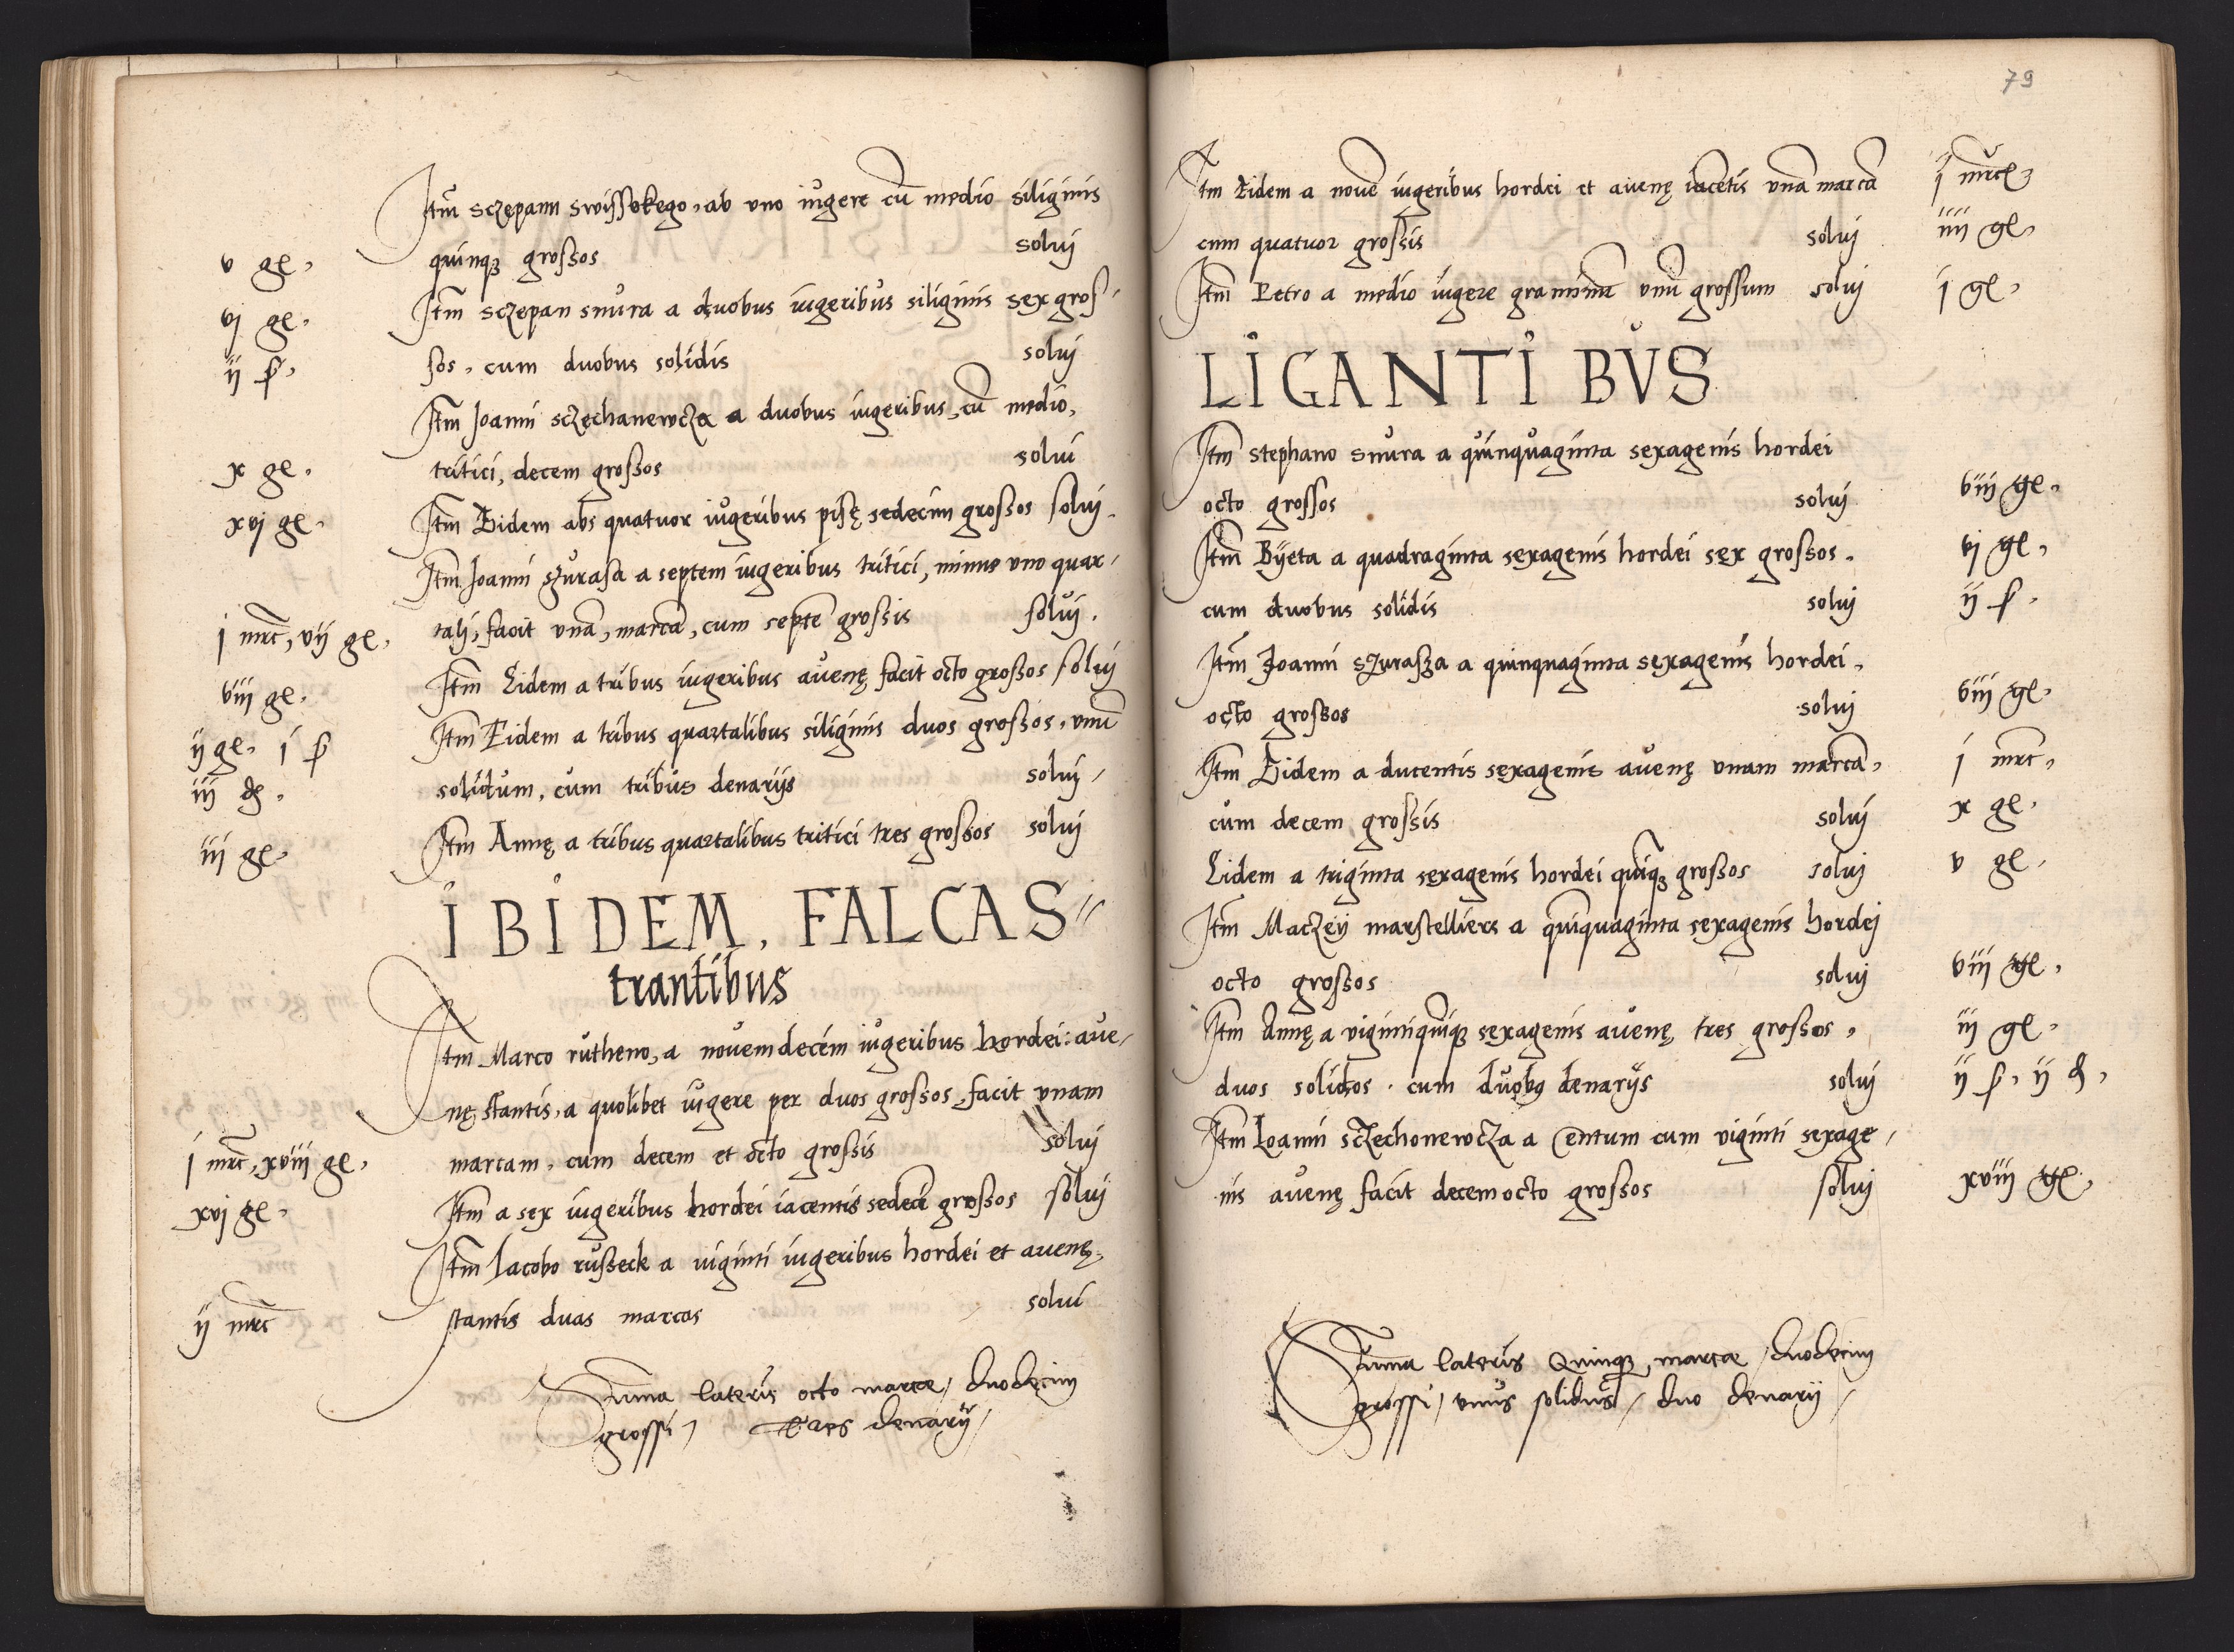 Itm̃ sczepann swissokego, ab vno iugere cũ medio siliginis
v gl. quinqz grossos solvj
vj gl. Itm sczepan snura a duobus iugeribus siliginis sex gros-
ij ſ. sos, cum duobus solidis solvj
Itm Joanni sczechanewcza a duobus iugeribus, cũ medio,
x gl. tritici, decem grossos solui
xvj gl. Itm Eidem abs quatuor iugeribus pisę sedecim grossos solvj.
Itm Joanni szurasa a septem iugeribus tritici, minus vno quar-
j mrc, vij gl. talj, facit vnã, marcã, cum septẽ grossis solvj.
viij gl. Itm Eidem a tribus iugeribus avenę facit octo grossos solvj
ij gl. j ſ Itm Eidem a tribus quartalibus siliginis duos grossos, vnũ
iij đ. solidum, cum tribus denarijs solvj
iij gl. Itm Annę a tribus quartalibus tritici tres grossos solvj
IBIDEM, FALCAS-
trantibus
Itm Marco rutheno, a novemdecem iugeribus hordei: ave-
nę stantis, a quolibet iugere per duos grossos, facit vnam
j mrc, xviij gl. marcam, cum decem et octo grossis solvj
xvj gl. Itm a sex iugeribus hordei iacentis sedecĩ grossos solvj
Itm Iacobo russeck a viginti iugeribus hordei et avenę,
ij mrc stantis duas marcas solui
Summa lateris octo marce, duodecim
grossi, tres denarij
79
Itm Eidem a novẽ iugeribus hordei et avenę iacẽtis vnã marcã j mrc
cum quatuor grossis solvj iiij gl.
Itm Petro a medio iugere graminũ vnũ grossum solvj j gl.
LIGANTIBVS
Itm stephano snura a quinquaginta sexagenis hordei
octo grossos solvj viij gl.
Itm Byeta a quadraginta sexagenis hordei sex grossos. vj gl.
cum duobus solidis solvj ij ſ.
Itm Joanni szurasza a quinquaginta sexagenis hordei,
octo grossos solvj viij gl.
Itm Eidem a ducentis sexagenis avenę vnam marcã, j mrc,
cum decem grossis solvj x gl.
Eidem a triginta sexagenis hordei quĩqz grossos solvj v gl.
Itm Maczey marstelliers a quĩquaginta sexagenis hordej
octo grossos solvj viij gl.
Itm Annę a vigintiquĩqz sexagenis avenę tres grossos, iij gl.
duos solidos. cum duobq denarijs solvj ij ſ. ij đ.
Itm Ioanni sczechonewcza a Centum cum viginti sexage-
nis avenę facit decemocto grossos solvj xviij gl.
Summa lateris Quinqz, marcæ, duodecim
grossi, vnus solidus, duo denarij